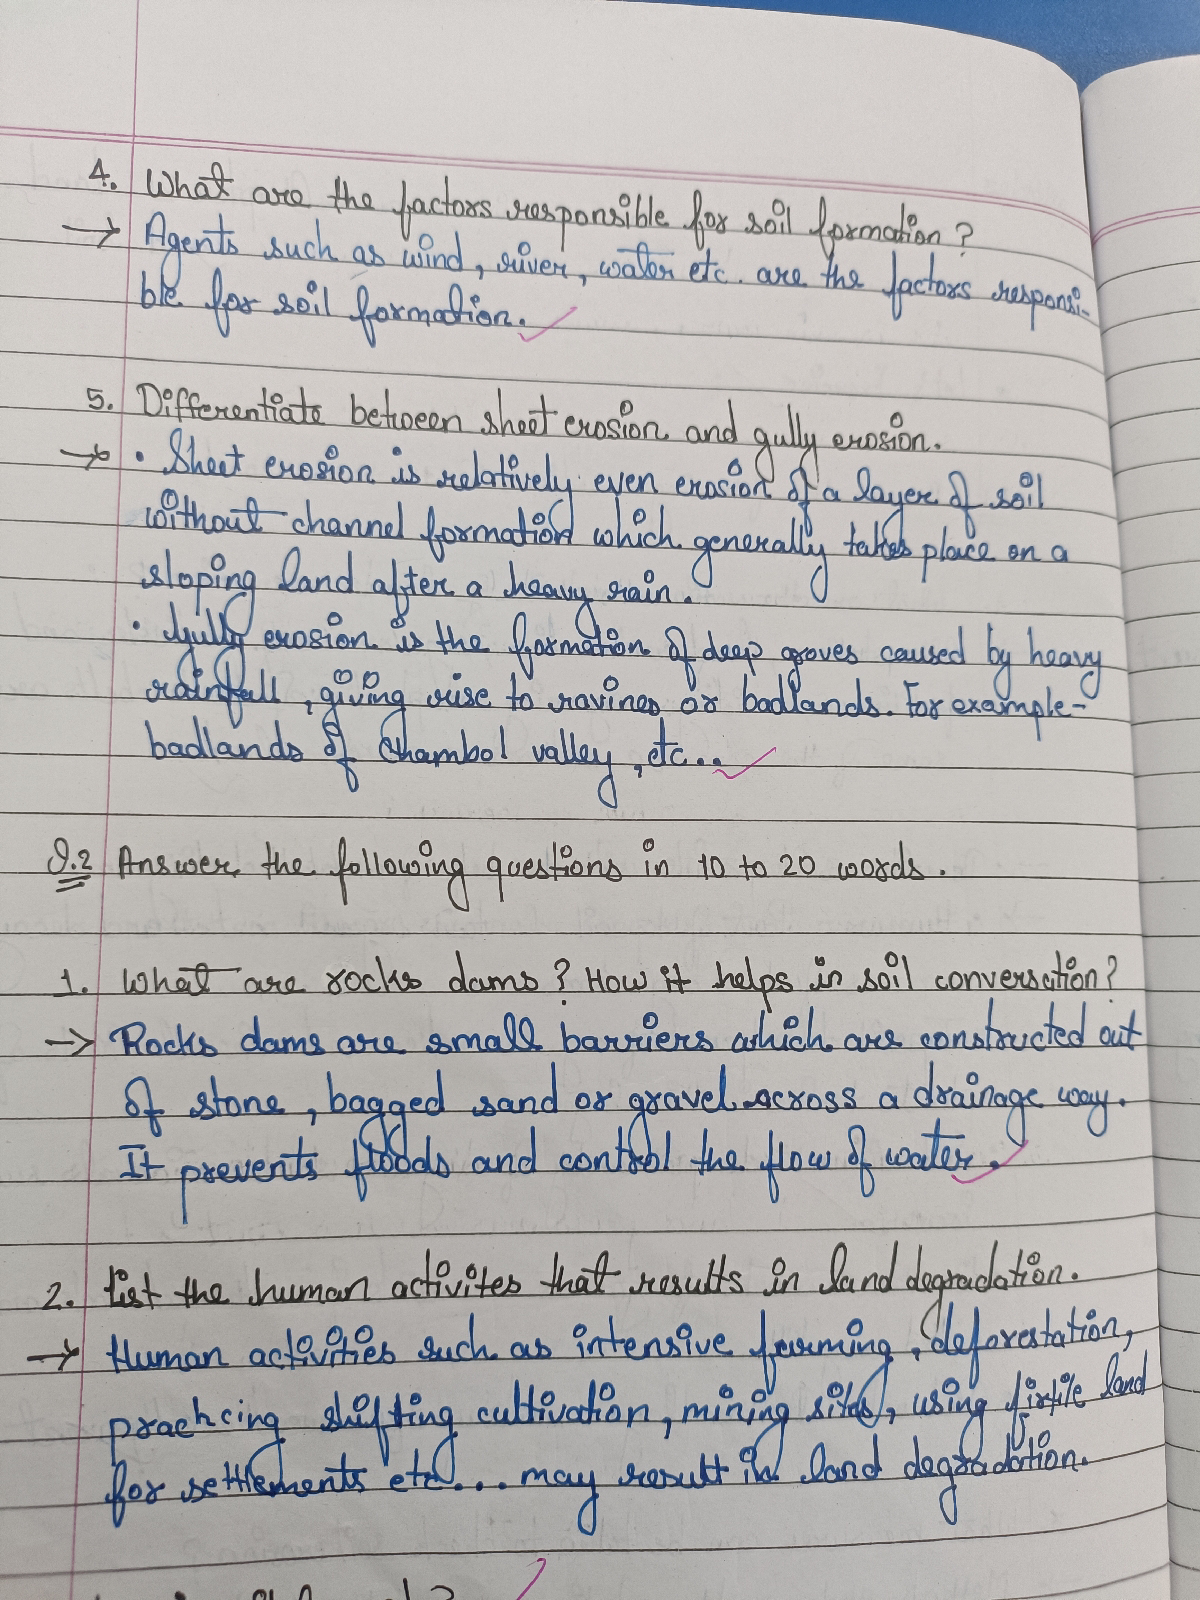 4. What are the factors responsible for soil formation?
→ Agents such as wind, river, water etc. are the factors responsi-
ble for soil formation.
5. Differentiate between sheet erosion and gully erosion.
→ • Sheet erosion is relatively even erosion of a layer of soil
without channel formation which generally takes place on a
sloping land after a heavy rain.
• Gully erosion is the formation of deep groves caused by heavy
rainfall, giving rise to ravines or badlands. For example-
badlands of Chambol valley, etc..
Q.2 Answer the following questions in 10 to 20 words.
1. What are rocks dams? How it helps in soil conversation?
→ Rocks dams are small barriers which are constructed out
of stone, bagged sand or gravel across a drainage way.
It prevents floods and control the flow of water.
2. List the human activites that results in land degradation.
→ Human activities such as intensive farming, deforestation,
practicing shifting cultivation, mining sites, using firtile land
for settlements etc... may result in land degradation.